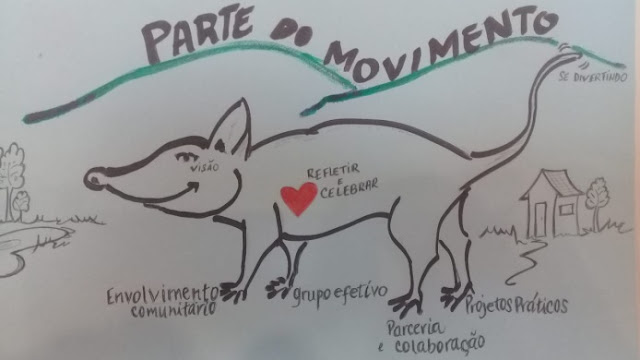 PARTE DO MOVIMENTO
SE DIVERTINDO
VISÃO
REFLETIR
E
CELEBRAR
Envolvimento
comunitário
grupo efetivo
Parceria
e colaboração
Projetos Práticos